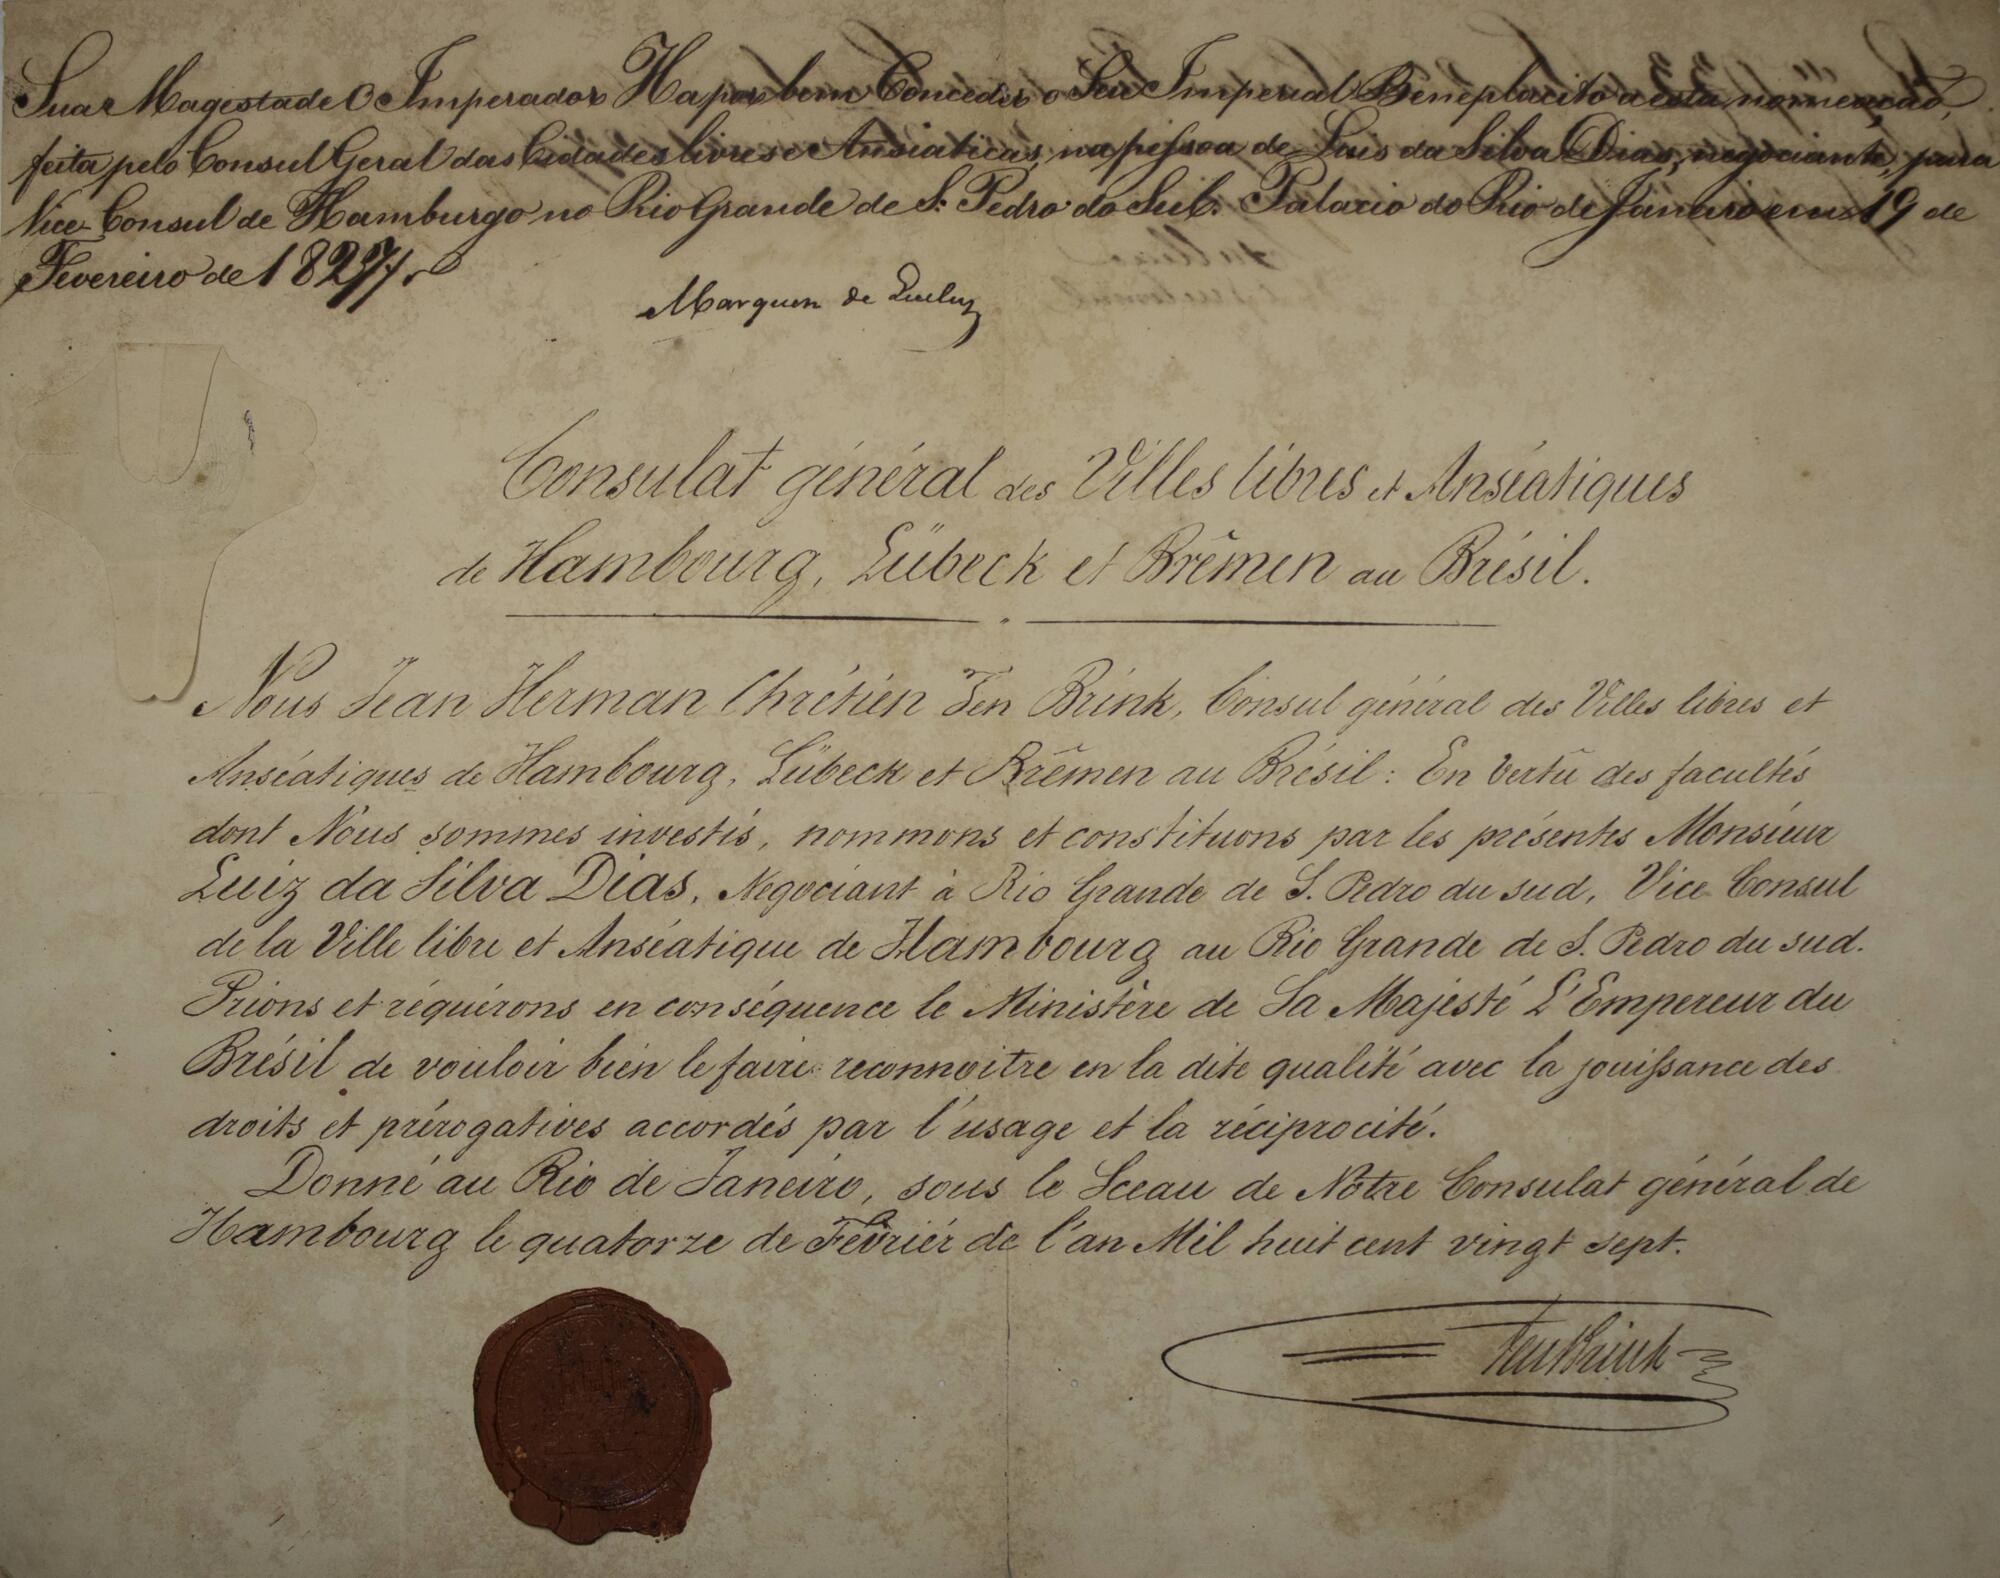 Sua Magestade O Imperador Ha por bem Conceder o Seu Imperial Beneplacito a esta nomeação,
feita pelo Consul Geral das Cidades livres e Ansiaticas, na pessoa de Luis da Silva Dias, negociante, para
Vice-Consul de Hamburgo no Rio Grande de S. Pedro do Sul. Palacio do Rio de Janeiro em 19 de
Fevereiro de 1827
Marquez de Queluz
Consulat général des Villes libres et Anséatiques
de Hambourg, Lübeck et Brêmen au Brésil.
Nous Jean Herman Chrétien Ten Brink, Consul général des Villes libres et
Anséatiques de Hambourg, Lübeck et Brêmen au Brésil: En vertû des facultés
dont Nous sommes investis, nommons et constituons par les présentes Monsieur
Luiz da Silva Dias, Negociant à Rio Grande de S. Pedro du sud, Vice Consul
de la Ville libre et Anséatique de Hambourg au Rio Grande de S. Pedro du sud.
Prions et réquérons en conséquence le Ministère de Sa Majesté L'Empereur du
Brésil de vouloir bien le faire reconnoitre en la dite qualité avec la jouissance des
droits et prérogatives accordés par l'usage et la réciprocité.
Donné au Rio de Janeiro, sous le Sceau de Notre Consulat général de
Hambourg le quatorze de Fevrier de l'an Mil huit cent vingt sept.
TenBrink